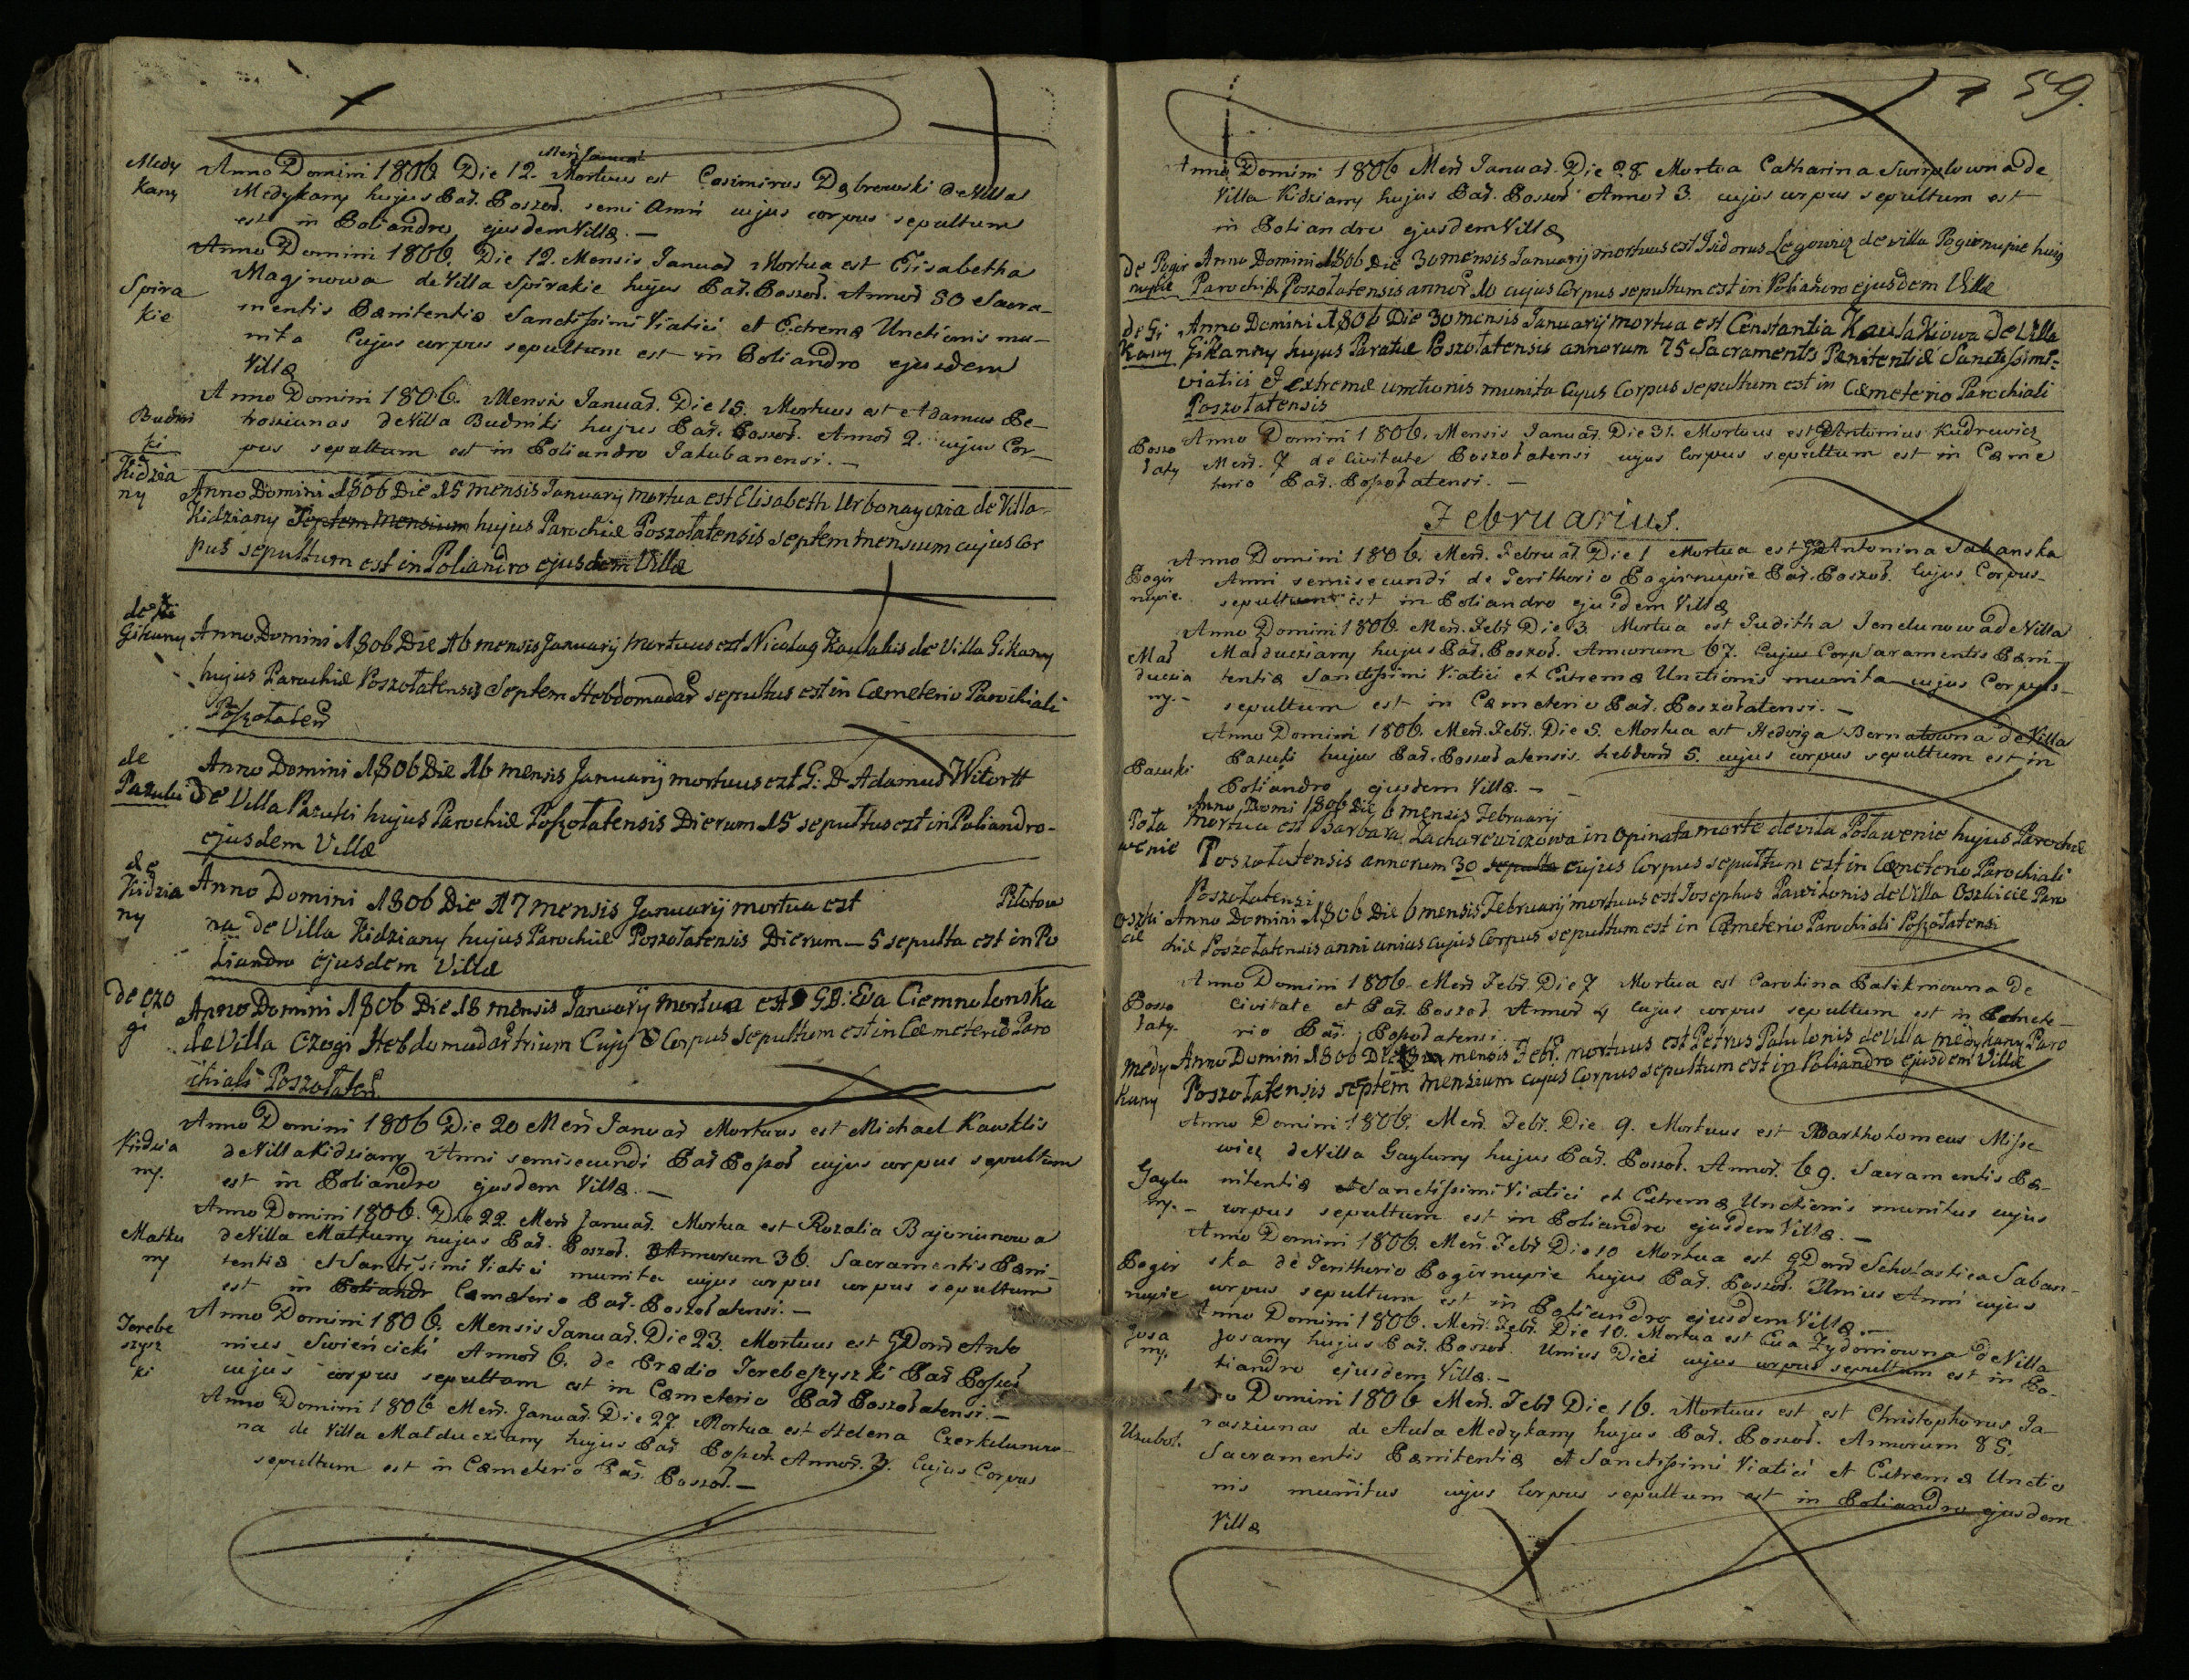 Medy
kany
Anno Domini 1806. Die 12. Meñ Januař Mortuus est Casimirus Dąbrowski de Villa
Medykany hujus Pař. Poszoł. semi Anni cujus corpus sepultum
est in Poliandro ejusdem Villæ. —
Spira
kie
Anno Domini 1806. Die 12. Mensis Januař Mortua est Elisabetha
Maginowa de Villa Spirakie hujus Pař. Poszoł. Annoř 80 Sacra-
mentis Pænitentiæ Sanctissimi Viatici et Extremæ Unctionis mu-
nita Cujus corpus sepultum est in Poliandro ejusdem
Villæ
Budni
ki
Anno Domini 1806. Mensis Januař. Die 15. Mortuus est Adamus Pe-
trosiunas de Villa Budniki hujus Pař. Poszoł. Annoř 2. cujus Cor-
pus sepultum est in Poliandro Jakubanensi. —
Kidzia
ny
Anno Domini 1806 Die 15 mensis Januarij mortua est Elisabeth Urbonayczia de Villa
Kidziany Septem Mensium hujus Parochiæ Poszołatensis septem mensium cujus Cor
pus sepultum est in Poliandro ejusdem Villæ
de
Gikany
Anno Domini 1806 Die 16 mensis Januarij mortuus est Nicolaq Kaulakis de Villa Gikany
hujus Parochiæ Poszołatensis Septem Hebdomadař sepultus est in Cæmeterio Parochiali
Poszołateñ
de
Pazuki
Anno Domini 1806 Die 16 mensis Januarij mortuus est G: D Adamus Witortt
de Villa Pazuki hujus Parochiæ Poszołatensis Dierum 15 sepultus est in Poliandro
ejusdem Villæ
de
Kidzia
ny
Anno Domini 1806 Die 17 mensis Januarij mortua est Piłatow
na de Villa Kidziany hujus Parochiæ Poszołatensis Dierum — 5 sepulta est in Po
liandro ejusdem Villæ
de czo
gi
Anno Domini 1806 Die 18 mensis Januarij mortua est GD: Eva Ciemnolonska
de Villa Czogi Hebdomadař trium Cujq Corpus sepultum est in Cæmeterio Paro
chiali Poszołateñ.
Kidzia
ny.
Anno Domini 1806 Die 20 Meñ Januař Mortuus est Michael Kawklis
de Villa Kidziany Anni semisecundi Pař Poszoł cujus corpus sepultum
est in Poliandro ejusdem Villæ. —
Matku
ny
Anno Domini 1806. Die 22. Meñ Januař. Mortua est Rozalia Bajoriunowa
de Villa Matkuny hujus Pař. Poszoł. Annorum 36. Sacramentis Pæni-
tentiæ et Sanctissimi Viatici munita cujus corpus corpus sepultum
est in Poliandr Cæmeterio Pař. Poszołatensi. —
Jerebe
szysz
ki
Anno Domini 1806. Mensis Januař. Die 23. Mortuus est GDoñ Anto
nius Swiencicki Annoř 6. de Prædio Jerebeszyszki Pař Poszoł
cujus corpus sepultum est in Cæmeterio Pař Poszołatensi. —
Anno Domini 1806 Meñ. Januař. Die 27. Mortua est Helena Czerkelunow-
na de Villa Małducziany hujus Pař Poszoł. Annoř. 3. Cujus Corpus
sepultum est in Cæmeterio Pař. Poszoł. —
59.
Anno Domini 1806 Meñ Januař. Die 28 Mortua Catharina Swirplowna de
Villa Kidziany hujus Pař. Poszoł Annoř 3. cujus corpus sepultum est
in Poliandro ejusdem Villæ
de Pogir
nupie
Anno Domini 1806 Die 30 mensis Januarij mortuus est Isidorus Legowicz de villa Pogirnupie hujq
Parochiæ Poszołatensis annoř 10 cujus Corpus sepultum est in Poliandro ejusdem Villæ
de Gi
kany
Anno Domini 1806 Die 30 mensis Januarij mortua est Constantia Kaulakiowa de Villa
Gikanny hujus Paratiæ Poszołatensis annorum 75 Sacramentis Pænitentiæ Sanctissimi
viatici et extremæ unctionis munita cuyus Corpus sepultum est in Cæmeterio Parochiali
Poszołatensis
Poszo
łaty
Anno Domini 1806. Mensis Januař. Die 31. Mortuus est GD Antonius Kudrewicz
Meñ. 7 de Civitate Poszołatensi cujus Corpus sepultum est in Cæme
terio Pař. Poszołatensi. —
Februarius.
Pogir
nupie.
Anno Domini 1806. Meñ. Februař. Die 1 Mortua est GD Antonina Sabanska
Anni semisecundi de Terithorio Pogirnupie Pař. Poszoł. Cujus Corpus
sepultum est in Poliandro ejusdem Villæ
Mał
duczia
ny. -
Anno Domini 1806. Meñ. Febř Die 3. Mortua est Juditha Jendunowa de Villa
Małducziany hujus Pař. Poszoł. Annorum 67. Cujus Corp Saramentis Pæni-
tentiæ Sanctissimi Viatici et Extremæ Unctionis munita cujus Corpus
sepultum est in Cæmeterio Pař. Poszołatensi. —
Pazuki
Anno Domini 1806. Meñ. Febř. Die 5. Mortua est Hedviga Bernatowna de Villa
Pazuki hujus Pař. Poszołatensis. hebdoñ 5. cujus corpus sepultum est in
Poliandro ejusdem Villæ. —
Poła
wenie
Anno Domi 1806 Die 6 mensis Februarij
Mortua est Barbara Zacharewiczowa in opinata morte de vila Poławenie hujus Parochiæ
Poszołatensis annorum 30 sepulta cujus Corpus sepultum est in Cæmeterio Parochiali
Poszołatensi
Oszki
cie
Anno Domini 1806 Die 6 mensis Februarij mortuus est Josephus Pawilonis de Villa Oszkicie Paro
chiæ Poszołatensis anni unius cujus Corpus sepultum est in Cæmeterio Parochiali Poszołatensi
Poszo
łaty.
Anno Domini 1806. Meñ Febř Die 7 Mortua est Carolina Paliknowna de
Civitate et Pař. Poszoł. Annoř 4 cujus corpus sepultum est in Cæmete-
rio Pař. Poszołatensi.
Medy
kany
Anno Domini 1806 Die 8 mensis Febř. mortuus est Petrus Patulonis de Villa Medykany Paro
Poszołatensis septem mensium cujus Corpus sepultum est in Poliandro ejusdem Villæ
Gaylu
ny. -
Anno Domini 1806. Meñ. Febř. Die 9. Mortuus est Bartholomeus Misse
wicz de Villa Gayluny hujus Pař. Poszoł. Annoř. 69. Sacramentis Pæ-
nitentiæ et Sanctissimi Viatici et Extremæ Unctionis munitus cujus
corpus sepultum est in Poliandro ejusdem Villæ. —
Pogir
nupie
Anno Domini 1806. Meñ. Febř Die 10 Mortua est GDoñ Scholastica Saban-
ska de Teritherio Pogirnupie hujus Pař. Poszoł. Unius Anni cujus
corpus sepultum est in Poliandro ejusdem Villæ. —
Josa
ny.
Anno Domini 1806. Meñ. Febř. Die 10. Mortua est Eva Zydoniowna de Villa
Josany hujus Pař. Poszoł. Unius Diei cujus corpus sepultum est in Po-
liandro ejusdem Villæ. —
Anno Domini 1806 Meñ. Febř Die 16. Mortuus est est Christophorus Ja-
rosziunas de Aula Medykany hujus Pař. Poszoł. Annorum 88.
Sacramentis Pænitentiæ et Sanctissimi Viatici et Extremæ Unctio
nis munitus cujus Corpus sepultum est in Poliandro ejusdem
Villæ